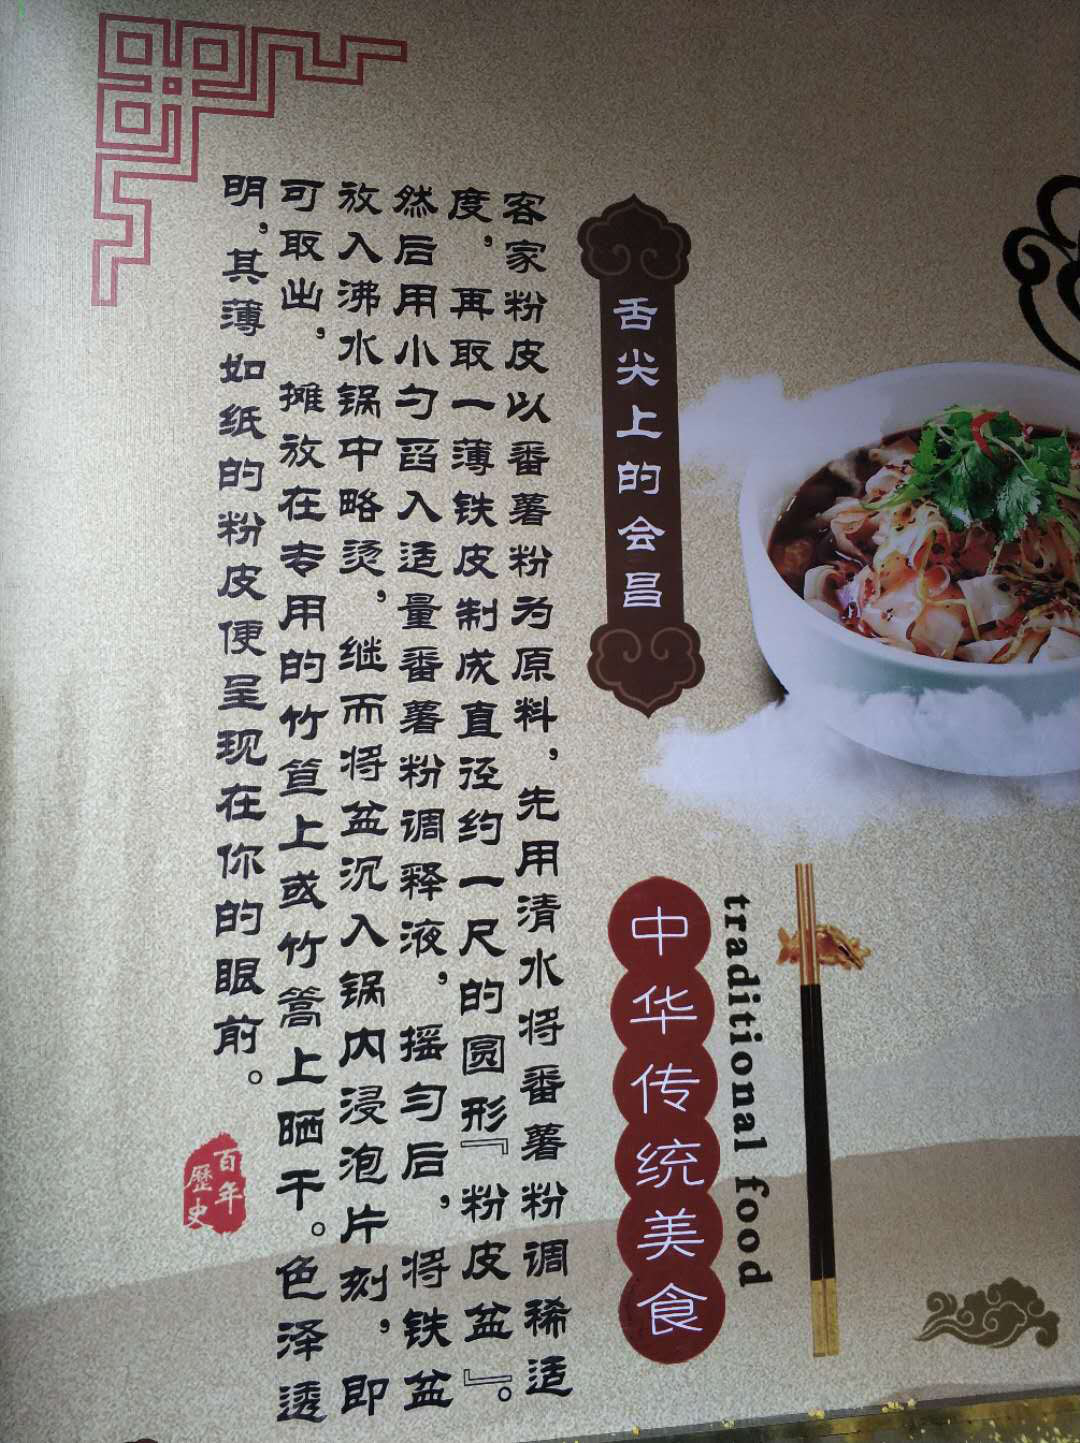 舌尖上的会昌
客家粉皮以番薯粉为原料，先用清水将番薯粉调稀适
度，再取一薄铁皮制成直径约一尺的圆形『粉皮盆』。
然后用小勺舀入适量番薯粉调释液，摇匀后，将铁盆
放入沸水锅中略烫，继而将盆沉入锅内浸泡片刻，即
可取出，摊放在专用的竹笪上或竹篙上晒干。色泽透
明，其薄如纸的粉皮便呈现在你的眼前。
百年
歷史
traditional food
中华传统美食